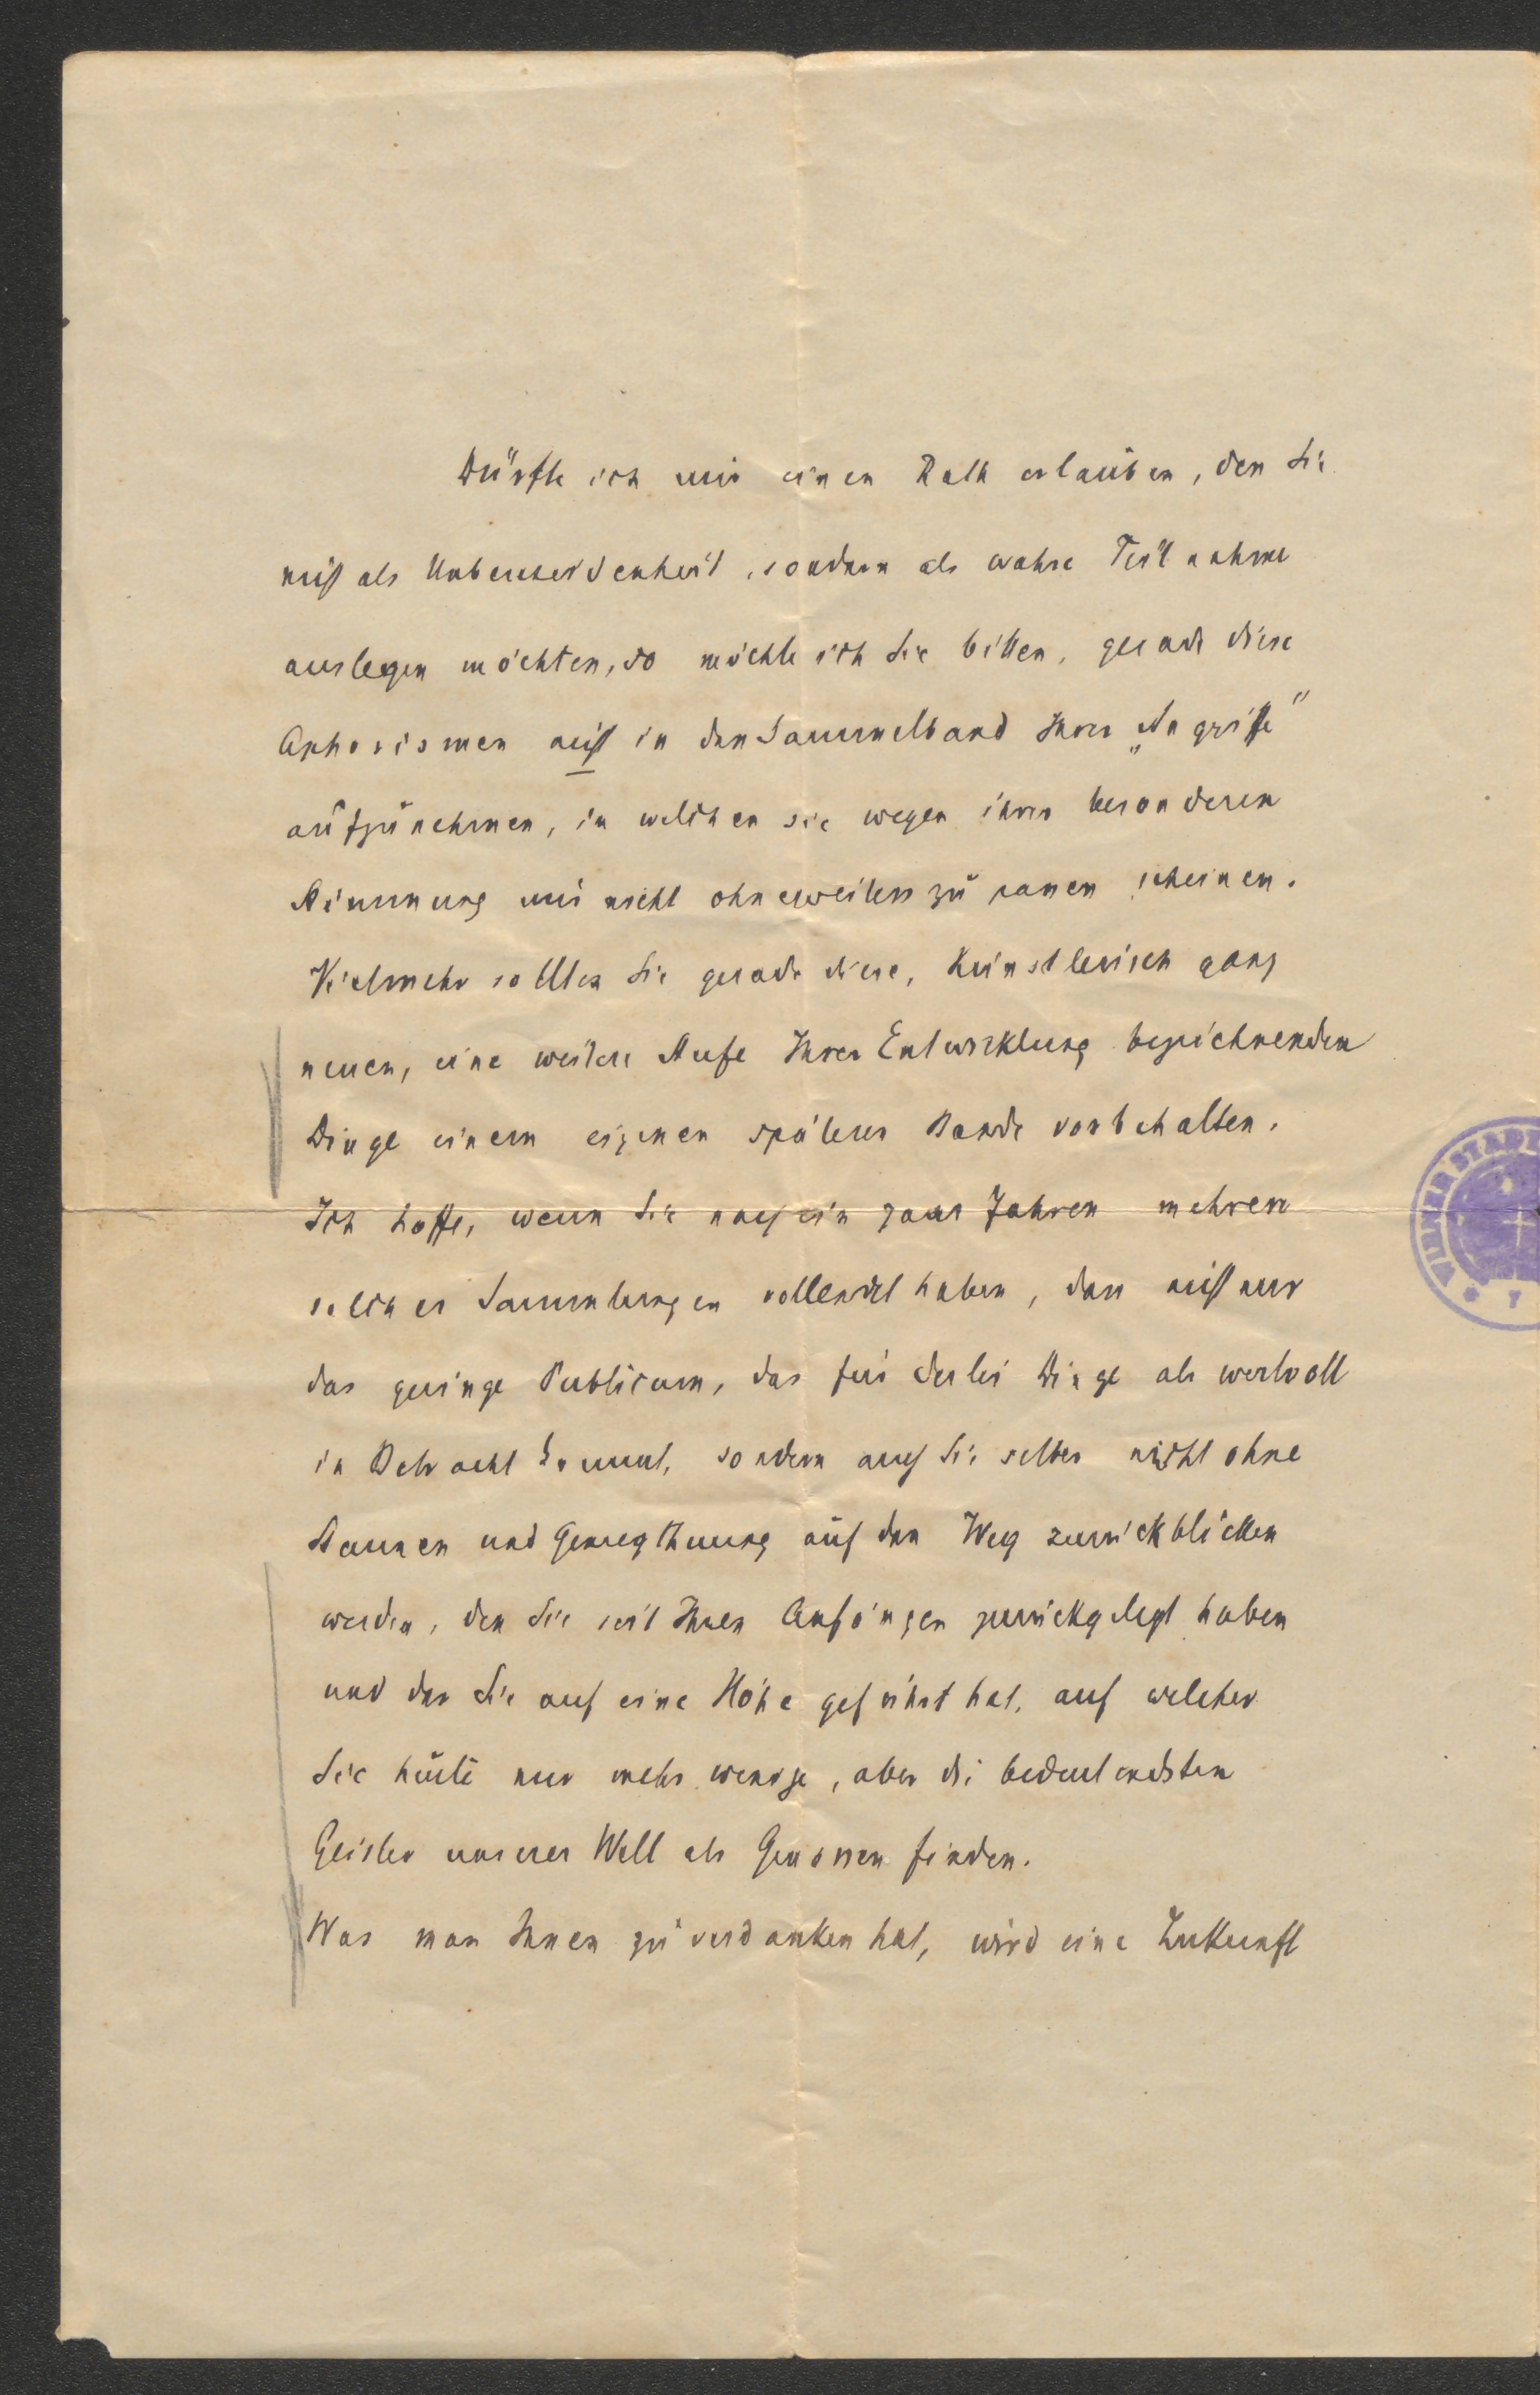 Dürfte ich mir einen Rath erlauben, den Sie
nicht als Unbescheidenheit, sondern als wahre Teilnahme
auslegen möchten, so möchte ich Sie bitten, gerade diese
Aphorismen nicht in den Sammelband Ihrer „Angriffe"
aufzunehmen, in welchen sie wegen ihrer besonderen
Stimmung mir nicht ohneweiters zu passen scheinen.
Vielmehr sollten Sie gerade diese, künstlerisch ganz
neuen, eine weitere Stufe Ihrer Entwicklung bezeichnenden
Dinge einem eigenen späteren Bande vorbehalten.
Ich hoffe, wenn Sie nach ein paar Jahren mehrere
solcher Sammlungen vollendet haben, dass nicht nur
das geringe Publicum, das für derlei Dinge als wertvoll
in Betracht kommt, sondern auch Sie selber nicht ohne
Staunen und Genugthuung auf den Weg zurückblicken
werden, den Sie seit Ihren Anfängen zurückgelegt haben
und der Sie auf eine Höhe geführt hat, auf welcher
Sie heute nur mehr wenige, aber die bedeutendsten
Geister unserer Welt als Genossen finden.
Was man Ihnen zu verdanken hat, wird eine Zukunft
WIENER STADT